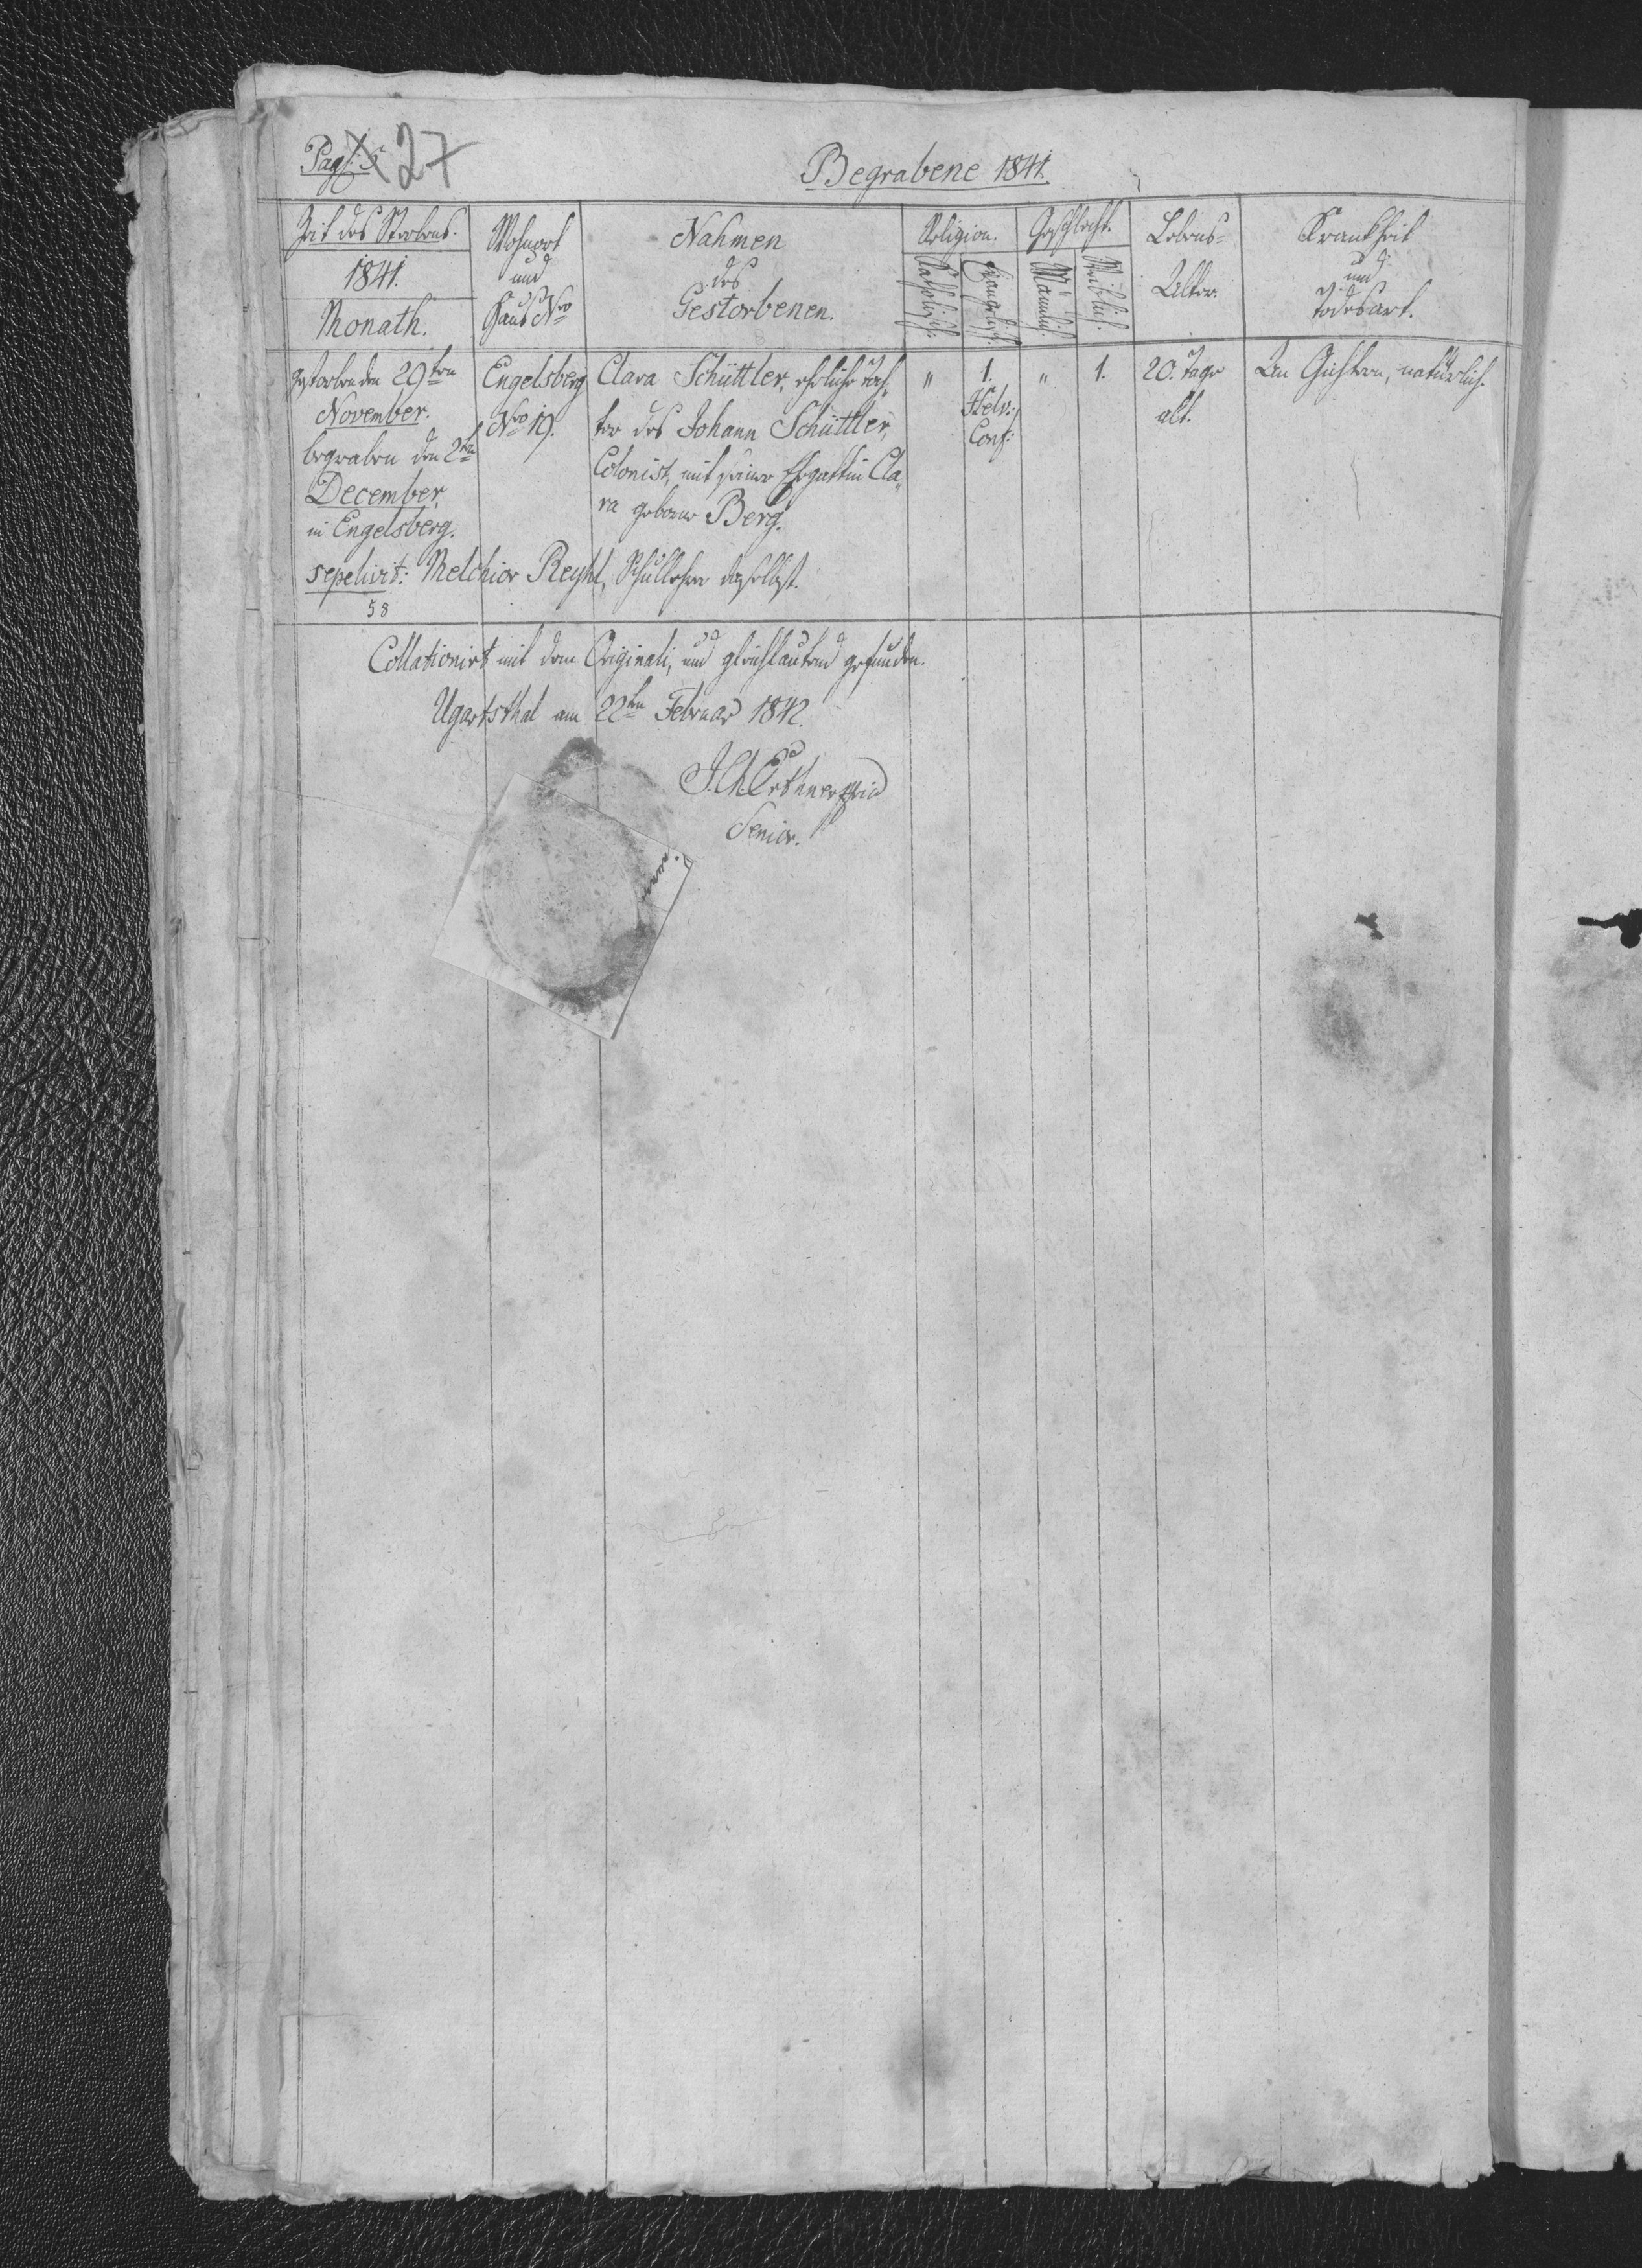 Pag: 5. 27
Begrabene 1841.
Zeit des Sterbens.
1841.
Monath.
Wohnort
und
Haus Nro
Nahmen
des
Gestorbenen.
Religion.
Katholisch.
Evangelisch.
Geschlecht.
Männlich.
Weiblich.
Lebens-
Alter.
Krankheit
und
Todesart.
gestorben den 29ten
November.
begraben den 2ten
December,
in Engelsberg.
Engelsberg
Nro 19.
Clara Schüttler, eheliche Toch„
ter des Johann Schüttler,
Colonist, mit seiner Ehgattin Cla„
ra geborne Berg.
"
1.
Helv:
Conf:
"
1.
20. Tage
alt.
An Gichtern, natürlich.
sepelivit: Melchior Reyhl, Schullehrer daselbst.
58
Collationirt mit dem Originali, und gleichlautend gefunden.
Ugartsthal am 22ten Februar 1842.
Senior.